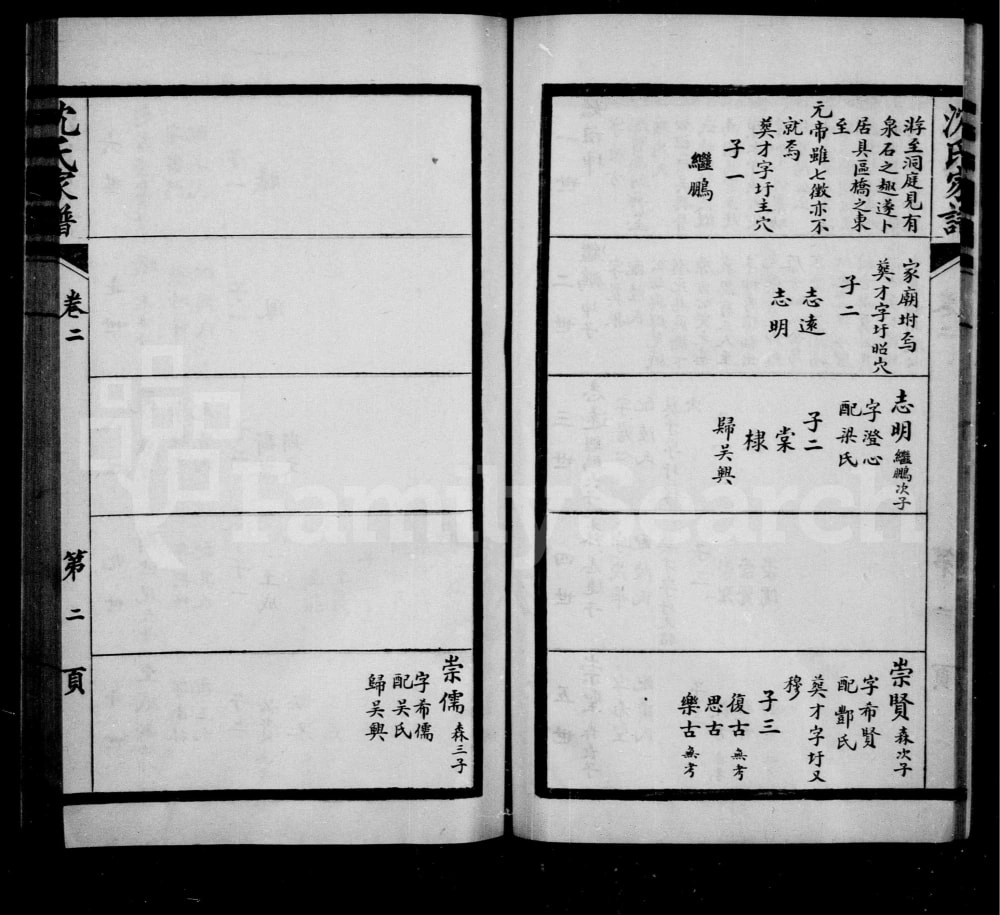 游至洞庭見有
泉石之趣遂卜
居具區橋之東
至
元帝雖七徵亦不
就焉
葬才字圩主穴
子一
繼鵬
家廟坿焉
葬才字圩昭穴
子二
志遠
志明
志明 繼鵬次子
字澄心
配梁氏
子二
棠
棣
歸吳興
崇賢 森次子
字希賢
配鄷氏
葬才字圩又
穆
子三
復古 無考
思古
樂古 無考
沈氏家譜
卷二
第二頁
崇儒 森三子
字希儒
配吳氏
歸吳興
FamilySearch